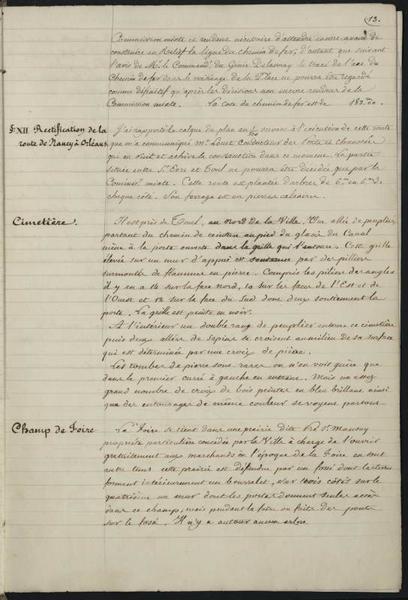 13.
Commission mixte se rendent nécessaire d'attendre encore avant de
construire en Relief la ligne du chemin de fer, d'autant que suivant
l'avis de Mr. le Command.t du Génie Delaunay le tracé de l'axe du
Chemin de fer dans le voisinage de la Place ne pourra être regardé
comme définitif qu'après les décisions non encore rendues de la
Commission mixte. La cote du chemin de fer est de
§ XII Rectification de la
route de Nancy à Orléans.
J'ai rapporté le calque du plan au relatif à l'exécution de cette route
que m'a communiqué Mr. Louet Conducteur des Ponts et chaussées
qui en suit et achève la construction dans ce moment. La partie
située entre St. Evre et Toul ne pourra être décidée que par la
Commis.n mixte. Cette route est plantée d'arbres de 6.m en 6.m de
chaque côté. Son ferrage est en pierres calcaires.
Cimetière.
Il est près de Toul, au Nord de la Ville. Une allée de peupliers
partant du chemin de ceinture au pied du glacis du Canal
mène à la porte ouverte dans la grille qui l'entoure. Cette grille
élevée sur un mur d'appui est soutenue par des piliers
surmontés de flammes en pierre. Compris les piliers des angles
il y en a 14 sur la face Nord, 10 sur les faces de l'Est et de
l'Ouest et 12 sur la face du Sud dont deux soutiennent la
porte. La grille est peinte en noir.
A l'intérieur un double rang de peupliers entoure ce cimetière
puis deux allées de sapins se croisent au milieu de sa surface
qui est déterminée par une croix de pierre.
Les tombes de pierre sont rares on n'en voit guère que
dans le premier carré à gauche en entrant. Mais un assez
grand nombre de croix de bois peintes en bleu brillant ainsi
que des entourages de même couleur se voyent partout.
Champ de Foire
La Foire se tient dans une prairie dite Pré St. Mansuy
propriété particulière concédée par la Ville à charge de l'ouvrir
gratuitement aux marchands à l'époque de la Foire en tout
autre tems cette prairie est défendue par un fossé dont les terres
forment intérieurement un bourrelet, sur trois côtés sur le
quatrième un mur dont les portes donnent seules accès
dans ce champ, mais pendant la foire on jette des ponts
sur le fossé. Il n'y a autour aucun arbre